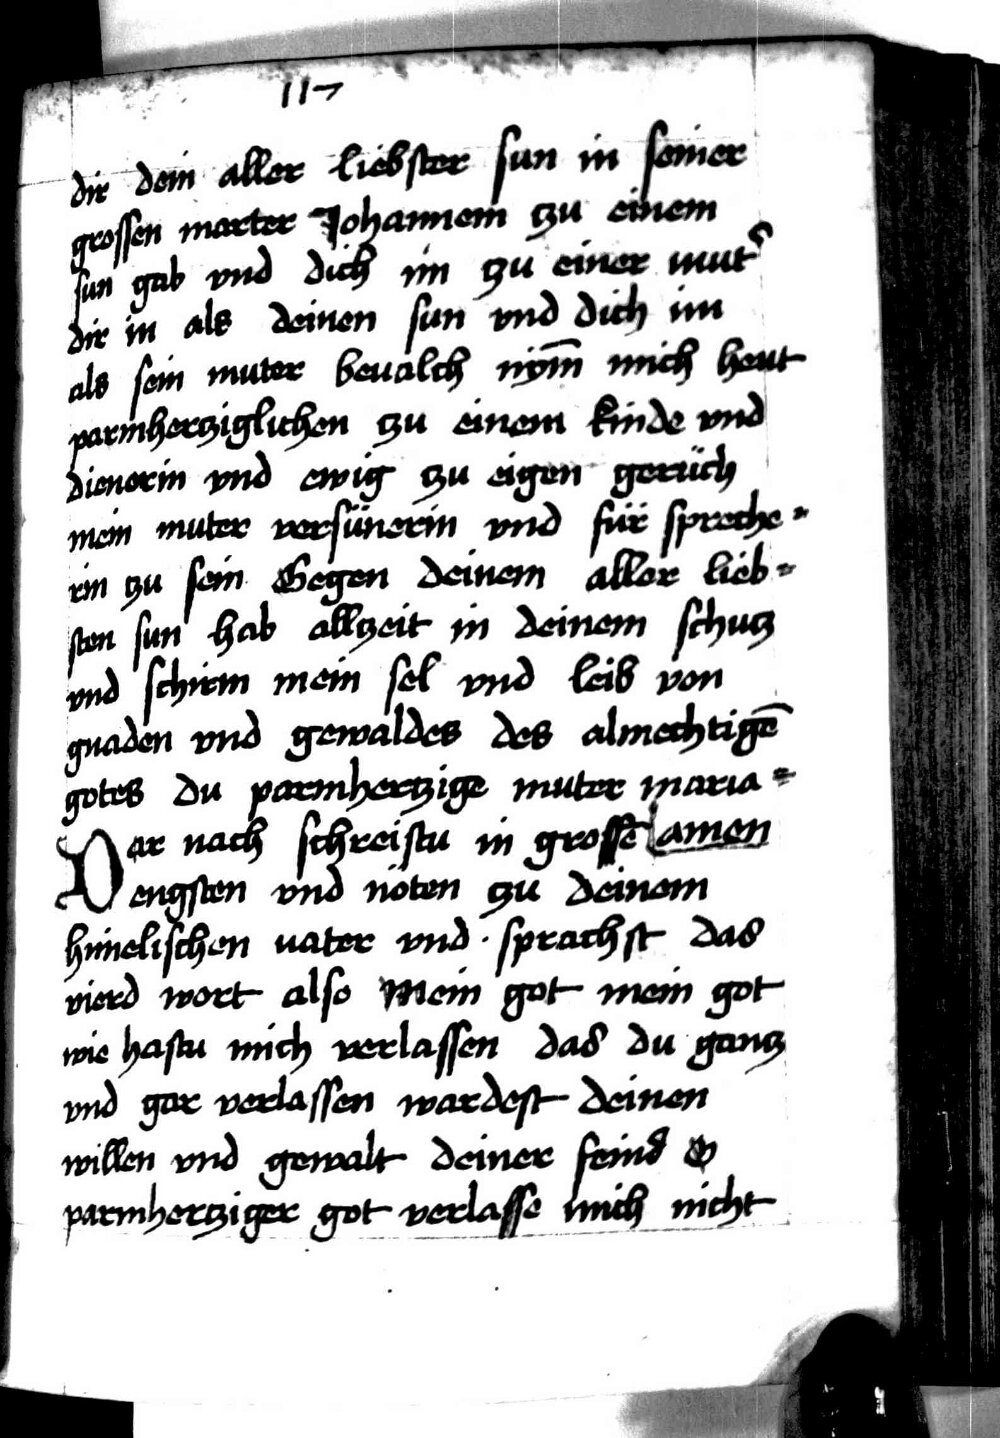 117
dir dein aller liebster sun in seiner
grossen marter Johannem tzu einem
sun gab vnd dich im tzu einer mut͛
dir in als deinen sun vnd dich im
als sein muter beualch nym̄ mich heut
parmhertziglichen tzu einem kinde vnd
dienerin vnd ewig tzu eigen gerüch
mein muter versünerin vnd für spreche⸗
rin tzu sein Gegen deinem aller lieb⸗
sten sun hab alltzeit in deinem schutz
vnd schirm mein sel vnd leib von
gnaden vnd gewaldes des almechtigē
gotes du parmhertzige muter maria⸗
Dar nach schreistu in grossē amen
engsten vnd nöten tzu deinem
himelischen uater vnd · sprachst das
vierd wort also Mein got mein got
wie hastu mich verlassen das du gantz
vnd gar verlassen wardest deinen
willen vnd gewalt deiner feind O
parmhertziger got verlasse mich nicht